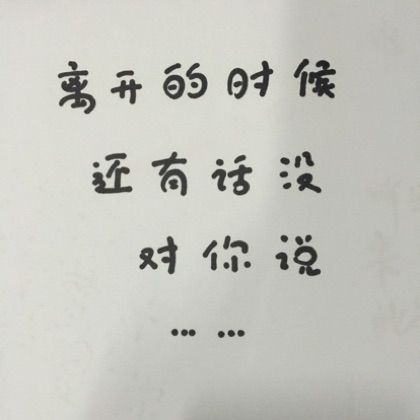 离开的时候
还有话没
对你说
……